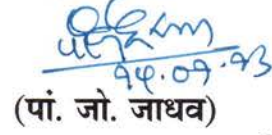 १५.०१.१३
(पां. जो. जाधव)